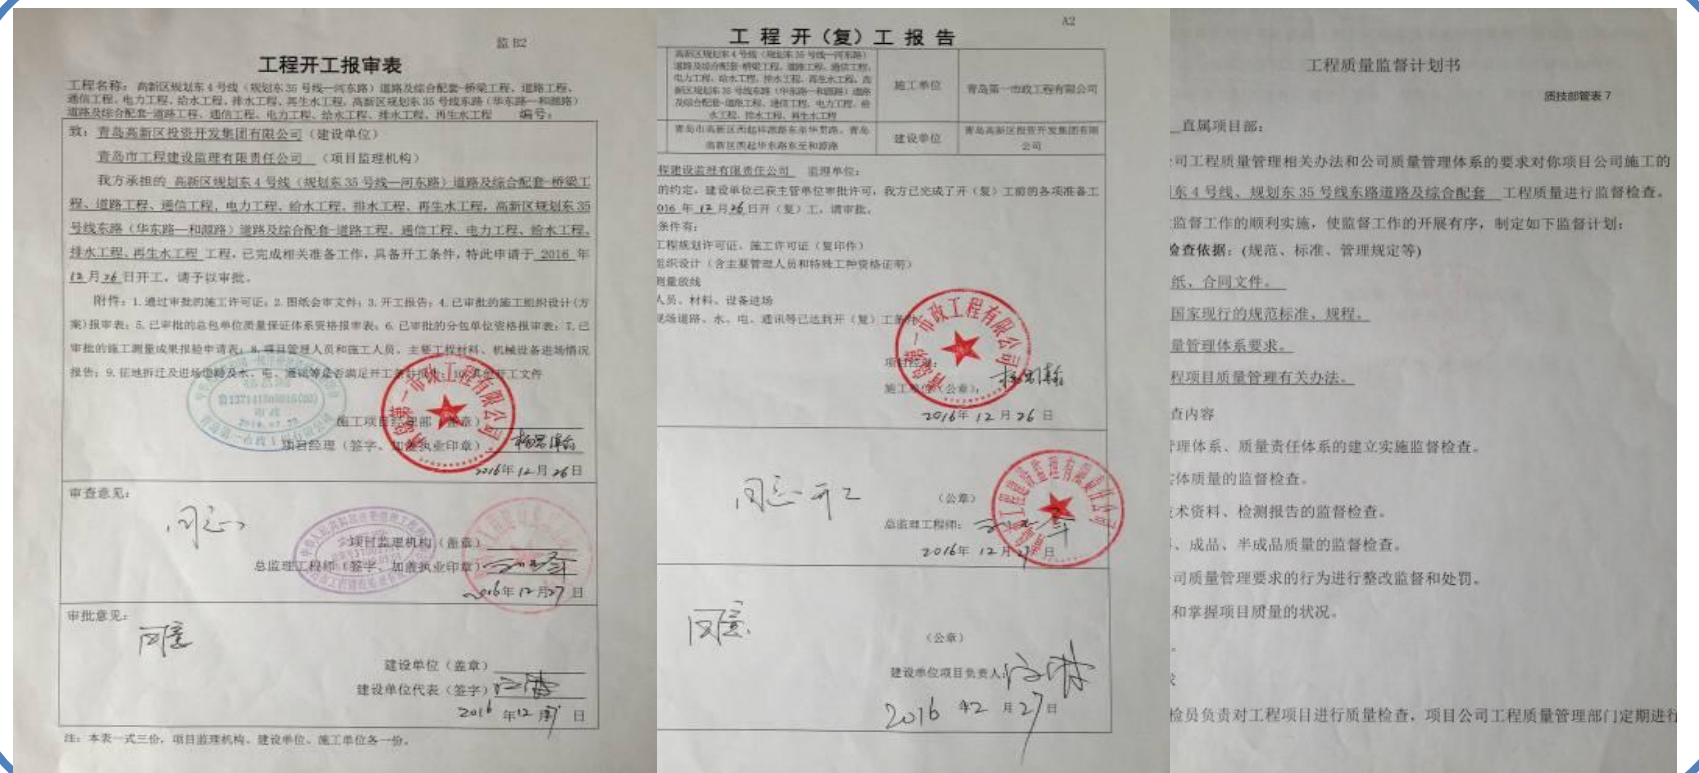 监 B2
工程开工报审表
工程名称： 高新区规划东4号线（规划东35号线—河东路）道路及综合配套-桥梁工程、道路工程、
通信工程、电力工程、给水工程、排水工程、再生水工程，高新区规划东35号线东路（华东路—和源路）
道路及综合配套-道路工程、通信工程、电力工程、给水工程、排水工程、再生水工程 编号：
致：青岛高新区投资开发集团有限公司（建设单位）
青岛市工程建设监理有限责任公司 （项目监理机构）
我方承担的 高新区规划东4号线（规划东35号线—河东路）道路及综合配套-桥梁工
程、道路工程、通信工程、电力工程、给水工程、排水工程、再生水工程，高新区规划东35
号线东路（华东路—和源路）道路及综合配套-道路工程、通信工程、电力工程、给水工程、
排水工程、再生水工程 工程，已完成相关准备工作，具备开工条件，特此申请于 2016 年
12 月 26 日开工，请予以审批。
附件：1.通过审批的施工许可证；2.图纸会审文件；3.开工报告；4.已审批的施工组织设计（方
案）报审表；5.已审批的总包单位质量保证体系资格报审表；6.已审批的分包单位资格报审表；7.已
审批的施工测量成果报验申请表；8.项目管理人员和施工人员、主要工程材料、机械设备进场情况
报告；9.征地拆迁及进场道路及水、电、通讯等是否满足开工条件报告；10.其他开工文件
青岛第一市政工程有限公司
施工项目经理部（盖章）
项目经理（签字、加盖执业印章）
2016年12月26日
审查意见：
同意
项目监理机构（盖章）
总监理工程师（签字、加盖执业印章）
2016年12月27日
审批意见：
同意
建设单位（盖章）
建设单位代表（签字）
2016年12月27日
注：本表一式三份，项目监理机构、建设单位、施工单位各一份。
A2
工 程 开（复）工 报 告
高新区规划东4号线（规划东35号线—河东路）
道路及综合配套-桥梁工程、道路工程、通信工程、
电力工程、给水工程、排水工程、再生水工程，高
新区规划东35号线东路（华东路—和源路）道路
及综合配套-道路工程、通信工程、电力工程、给
水工程、排水工程、再生水工程
施工单位
青岛第一市政工程有限公司
青岛市高新区西起祥源路东至华贯路，青岛
高新区西起华东路东至和源路
建设单位
青岛高新区投资开发集团有限
公司
程建设监理有限责任公司 监理单位：
的约定，建设单位已获主管单位审批许可，我方已完成了开（复）工前的各项准备工
016 年 12 月 26 日开（复）工，请审批。
条件有：
工程规划许可证、施工许可证（复印件）
组织设计（含主要管理人员和特殊工种资格证明）
测量放线
人员、材料、设备进场
现场道路、水、电、通讯等已达到开（复）工条件
青岛第一市政工程有限公司
项目经理：
施工单位（公章）：
2016年12月26日
同意开工
（公章）
总监理工程师：
2016年12月27日
同意
（公章）
建设单位项目负责人：
2016年12月27日
工程质量监督计划书
质技部管表 7
直属项目部：
司工程质量管理相关办法和公司质量管理体系的要求对你项目公司施工的
东4号线、规划东35号线东路道路及综合配套 工程质量进行监督检查。
监督工作的顺利实施，使监督工作的开展有序，制定如下监督计划：
检查依据：（规范、标准、管理规定等）
纸、合同文件。
国家现行的规范标准、规程。
量管理体系要求。
程项目质量管理有关办法。
查内容
管理体系、质量责任体系的建立实施监督检查。
体质量的监督检查。
术资料、检测报告的监督检查。
、成品、半成品质量的监督检查。
司质量管理要求的行为进行整改监督和处罚。
和掌握项目质量的状况。
检员负责对工程项目进行质量检查，项目公司工程质量管理部门定期进行